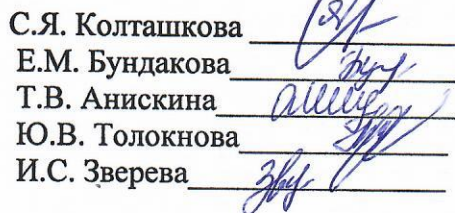 С.Я. Колташкова
Е.М. Бундакова
Т.В. Анискина
Ю.В. Толокнова
И.С. Зверева